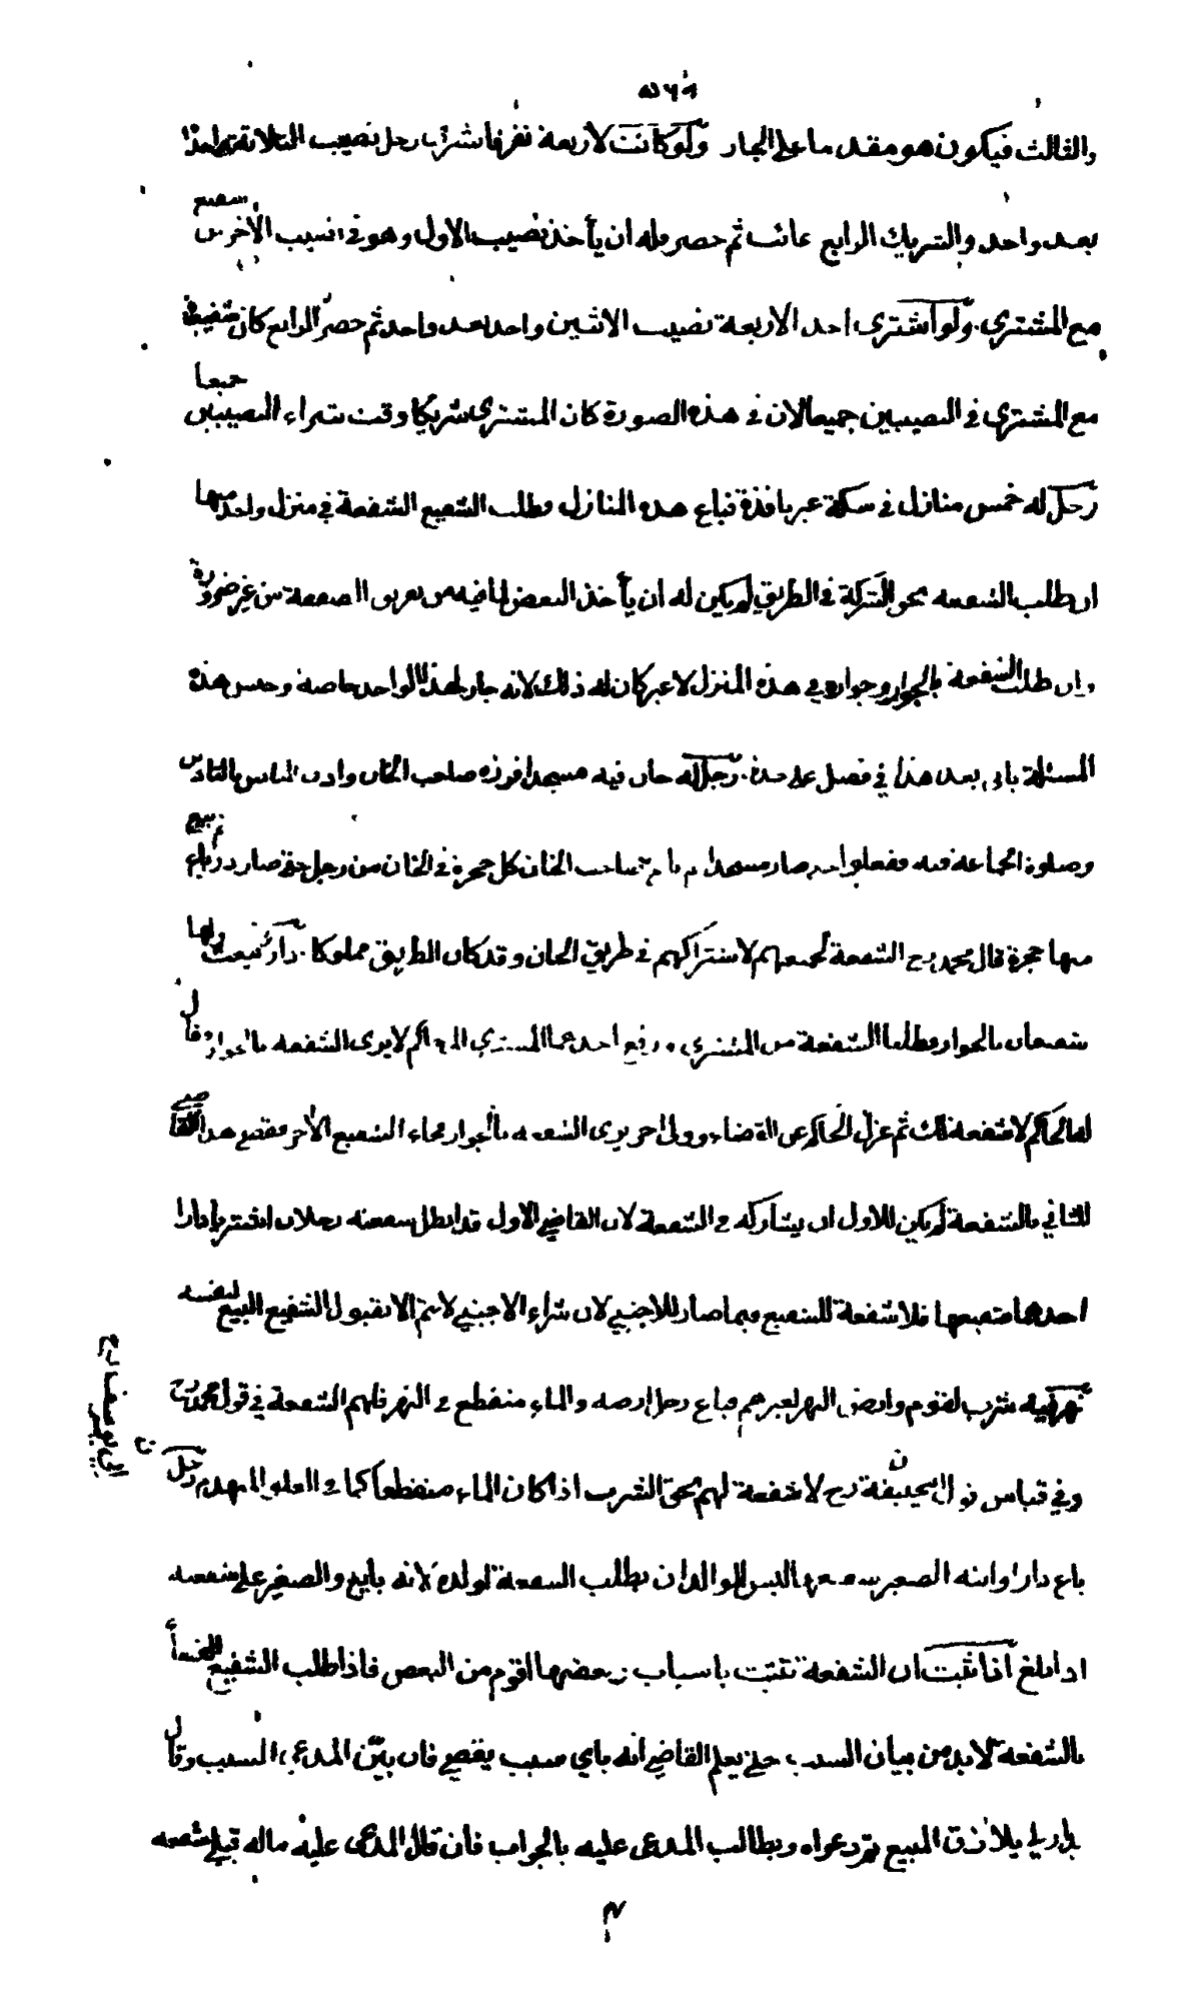 والثالث فيكون هو مقدما على الجار ولو كانت لاربعة نفر فاشترى رجل نصيب الثلاثة واحدا
بعد واحد والشريك الرابع غائب ثم حضر فله ان يأخذ نصيب الاول وهو في نصيب الآخرين شفيع
مع المشتري. ولو اشترى احد الاربعة نصيب الاثنين واحدا بعد واحد ثم حضر الرابع كان شفيعا
مع المشتري في النصيبين جميعا لان في هذه الصورة كان المشتري شريكا وقت شراء النصيبين جميعا
رجل له خمس منازل في سكة غير نافذة فباع هذه المنازل وطلب الشفيع الشفعة في منزل واحد منها
ان طلب الشفعة بحق الشركة في الطريق لم يكن له ان يأخذ البعض لما فيه من تفريق الصفقة من غير ضرورة
وان طلب الشفعة بالجوار وجواره في هذه المنزل لا غير كان له ذلك لانه جار لهذا الواحد خاصة وجنس هذه
المسئلة يأتي بعد هذا في فصل على حدة. رجل له خان فيه مسجد افرزه صاحب الخان واذن الناس بالتأذين
وصلوة الجماعة فيه ففعلوا حتى صار مسجدا ثم باع صاحب الخان كل حجرة في الخان من رجل حتى صار دربا ثم بيع
منها حجرة قال محمد رح الشفعة لجميعهم لاشتراكهم في طريق الخان وقد كان الطريق مملوكا. دار بيعت ولها
شفيعان بالجوار وطلبا الشفعة من المشتري ورفع احدهما المشتري الى حاكم لا يرى الشفعة بالجوار فقال
له الحاكم لا شفعة لك ثم عزل الحاكم عن القضاء وولى آخر يرى الشفعة بالجوار فجاء الشفيع الآخر فقضى هذا القاضي
للثاني بالشفعة لم يكن للاول ان يشاركه في الشفعة لان القاضي الاول قد ابطل شفعته رجلان اشتريا دارا
احدهما شفيعها فلا شفعة للشفيع فيما صار للاجنبي لان شراء الاجنبي لا يتم الا بقبول الشفيع البيع لنفسه
نهر فيه شرب لقوم وارض النهر لغيرهم فباع رجل ارضه والماء منقطع في النهر فلهم الشفعة في قول محمد رح
وفي قياس قول ابي حنيفة رح لا شفعة لهم بحق الشرب اذا كان الماء منقطعا كما في العلو المنهدم رجل
باع دارا وابنه الصغير شفيعها ليس للوالد ان يطلب الشفعة لولده لانه بايع والصغير على شفعته
اذا بلغ اذا ثبت ان الشفعة تثبت باسباب بعضها اقوم من البعض فاذا طلب الشفيع
بالشفعة لا بد من بيان السبب حتى يعلم القاضي انه باي سبب يقضي فان بيّن المدعي السبب وقال
بدار لي يلازق المبيع تم دعواه ويطالب المدعى عليه بالجواب فان قال المدعى عليه ماله قبلي شفعة